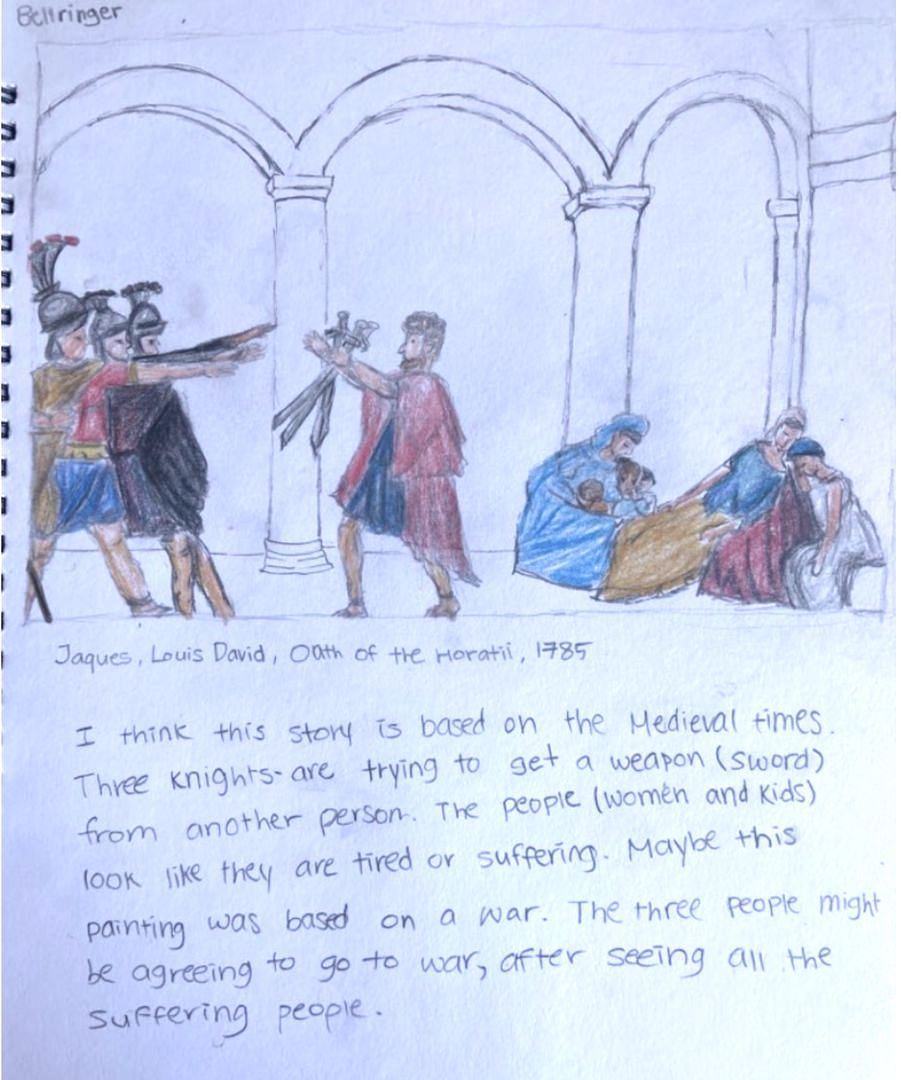 Bellringer
Jaques, Louis David, Oath of the Horatii, 1785
I think this story is based on the Medieval times.
Three knights- are trying to get a weapon (sword)
from another person. The people (women and kids)
look like they are tired or suffering. Maybe this
painting was based on a war. The three people might
be agreeing to go to war, after seeing all the
suffering people.